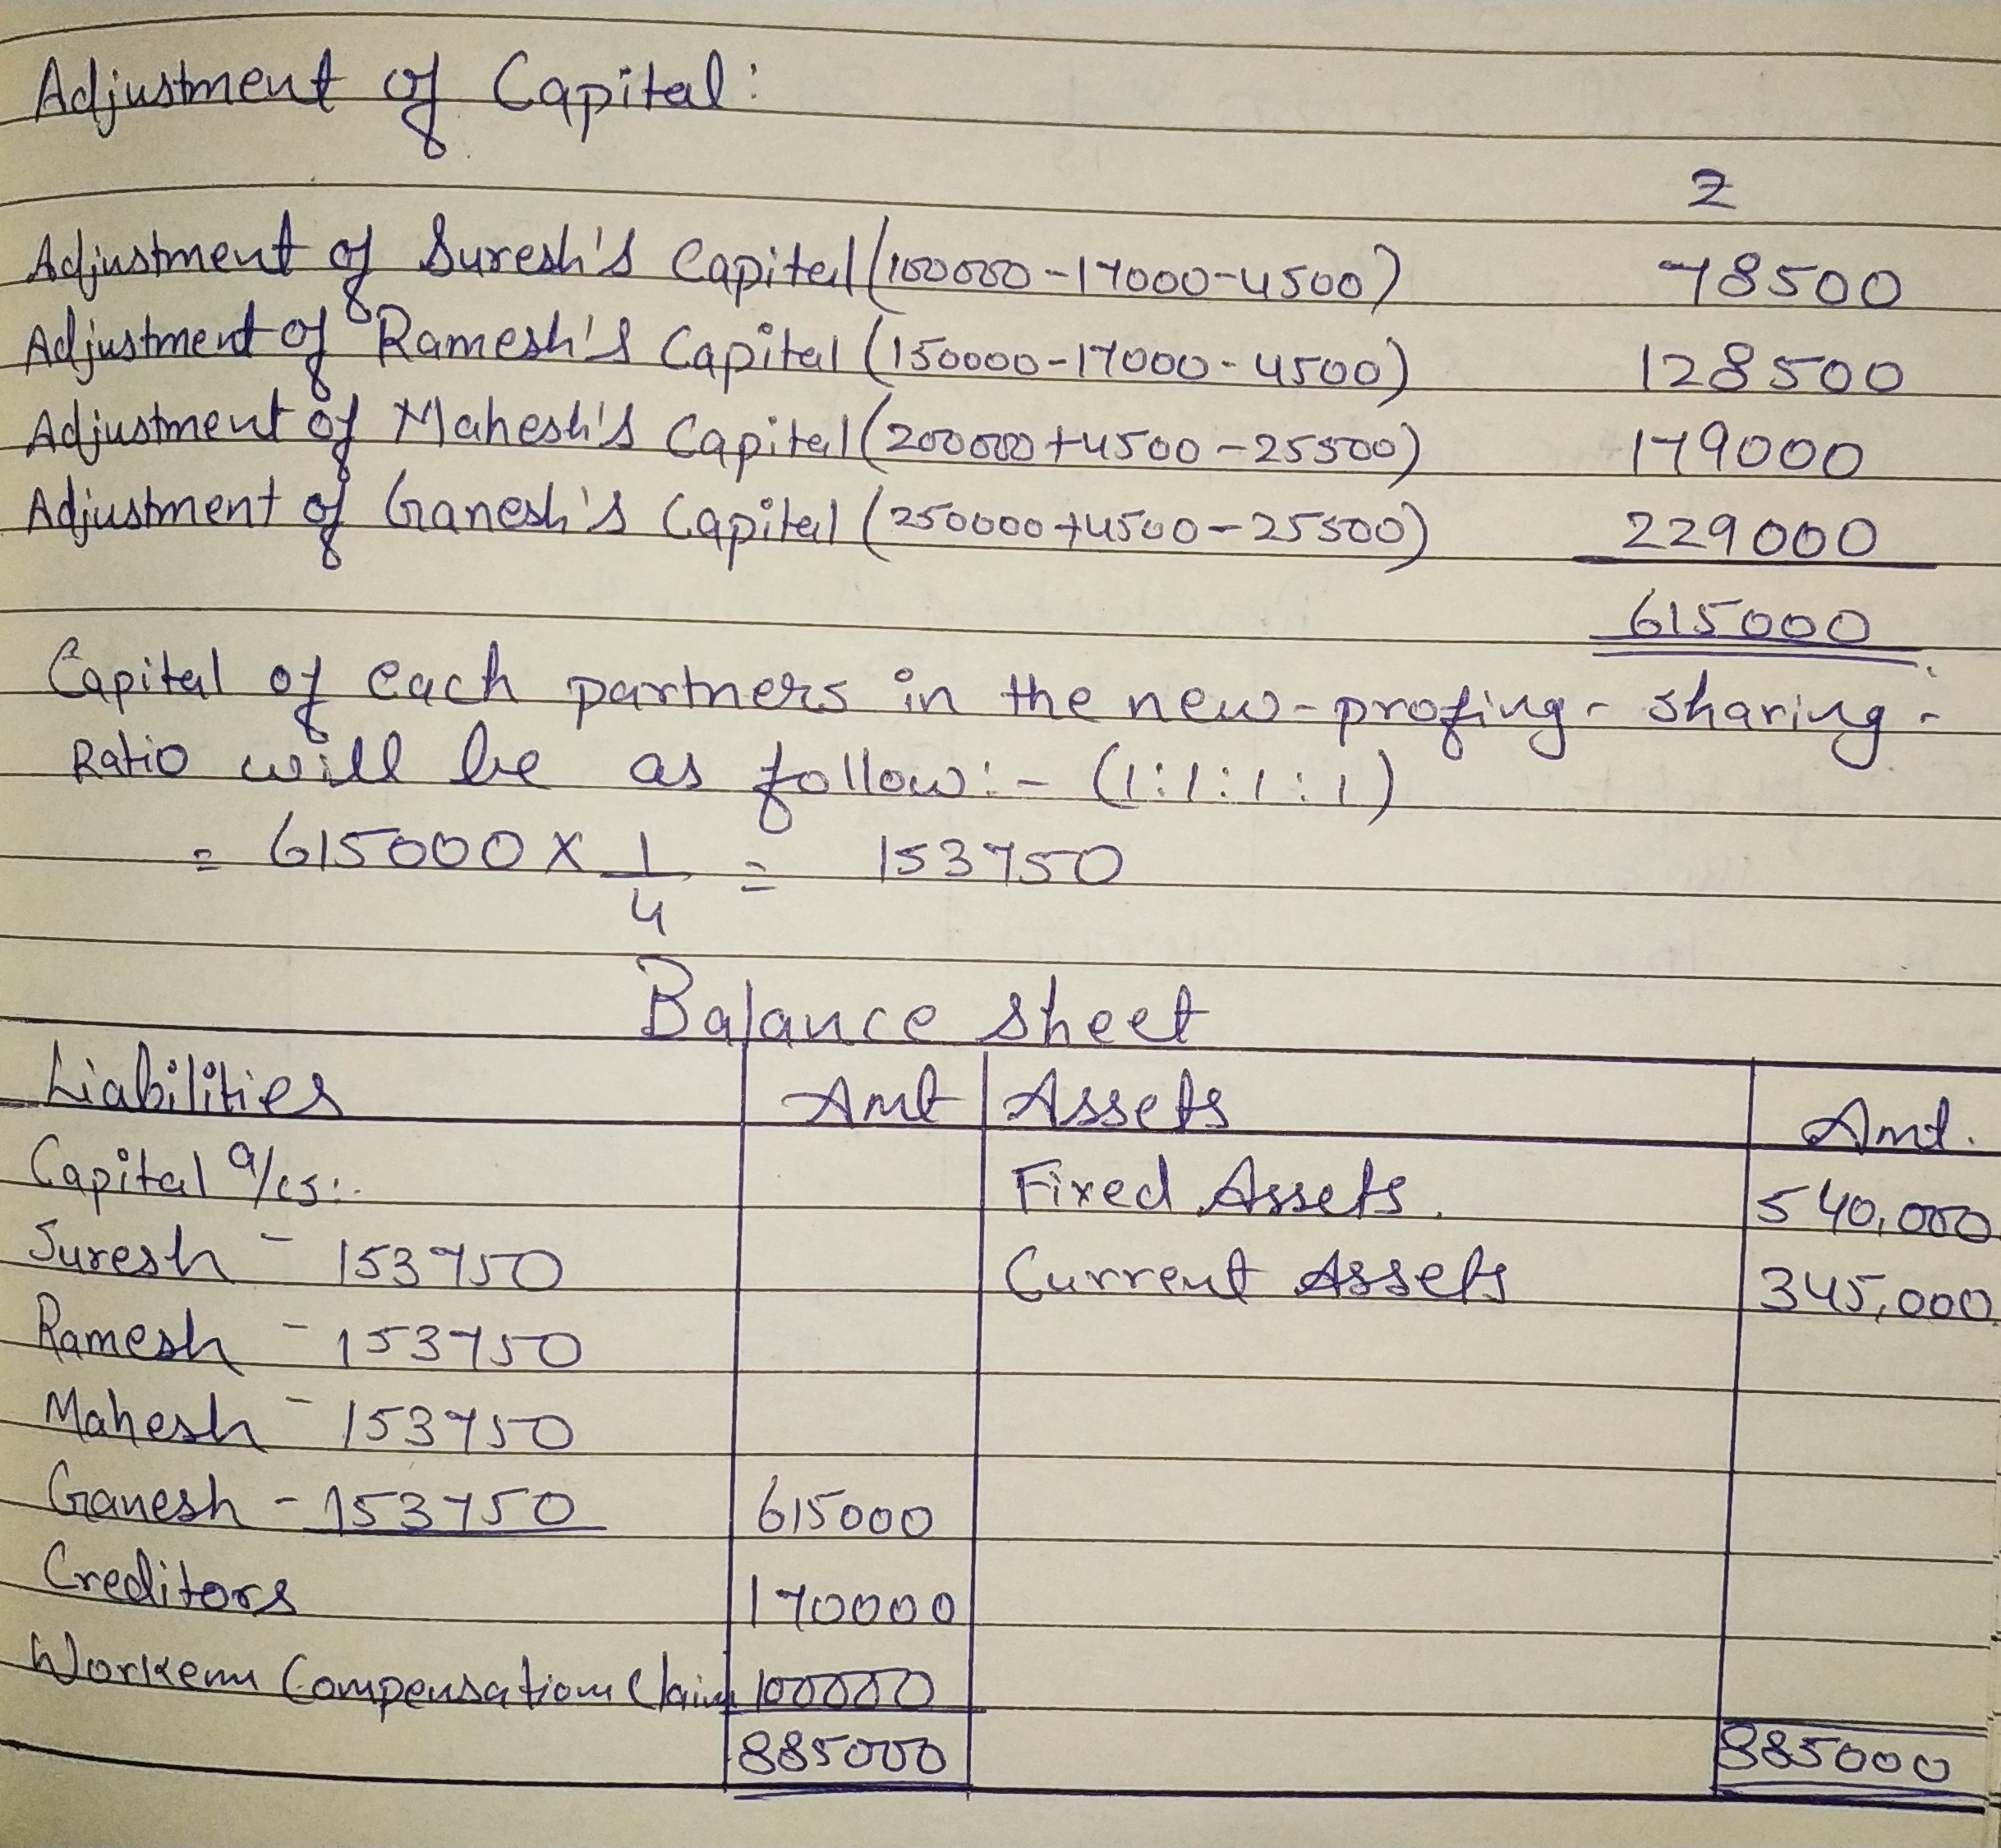 Adjustment of Capital:
₹
Adjustment of Suresh's Capital (100000-17000-4500) 78500
Adjustment of Ramesh's Capital (150000-17000-4500) 128500
Adjustment of Mahesh's Capital (200000+4500-25500) 179000
Adjustment of Ganesh's Capital (250000+4500-25500) 229000
615000
Capital of each partners in the new-profing-sharing-
Ratio will be as follow:- (1:1:1:1)
= 615000 X 1/4 = 153750
Balance sheet
Liabilities Amt Assets Amt.
Capital a/cs:- Fixed Assets. 540,000
Suresh - 153750 Current Assets 345,000
Ramesh - 153750
Mahesh - 153750
Ganesh - 153750 615000
Creditors 170000
Workenn Compensation Claim 100000
885000 885000